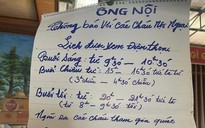 ÔNG NỘI
Thông báo Với Các Cháu Nội Ngoại
Lịch được xem Điện thoại
Buổi Sáng: từ 9h30 - 10h30
Buổi Chiều: từ 15 - 16h30 trở lại
(3 chiều - 4h30 chiều)
Buổi tối: từ 20h - 21h30 tối
(từ 8h - 9h30 tối)
Ngoài ra các cháu tham gia